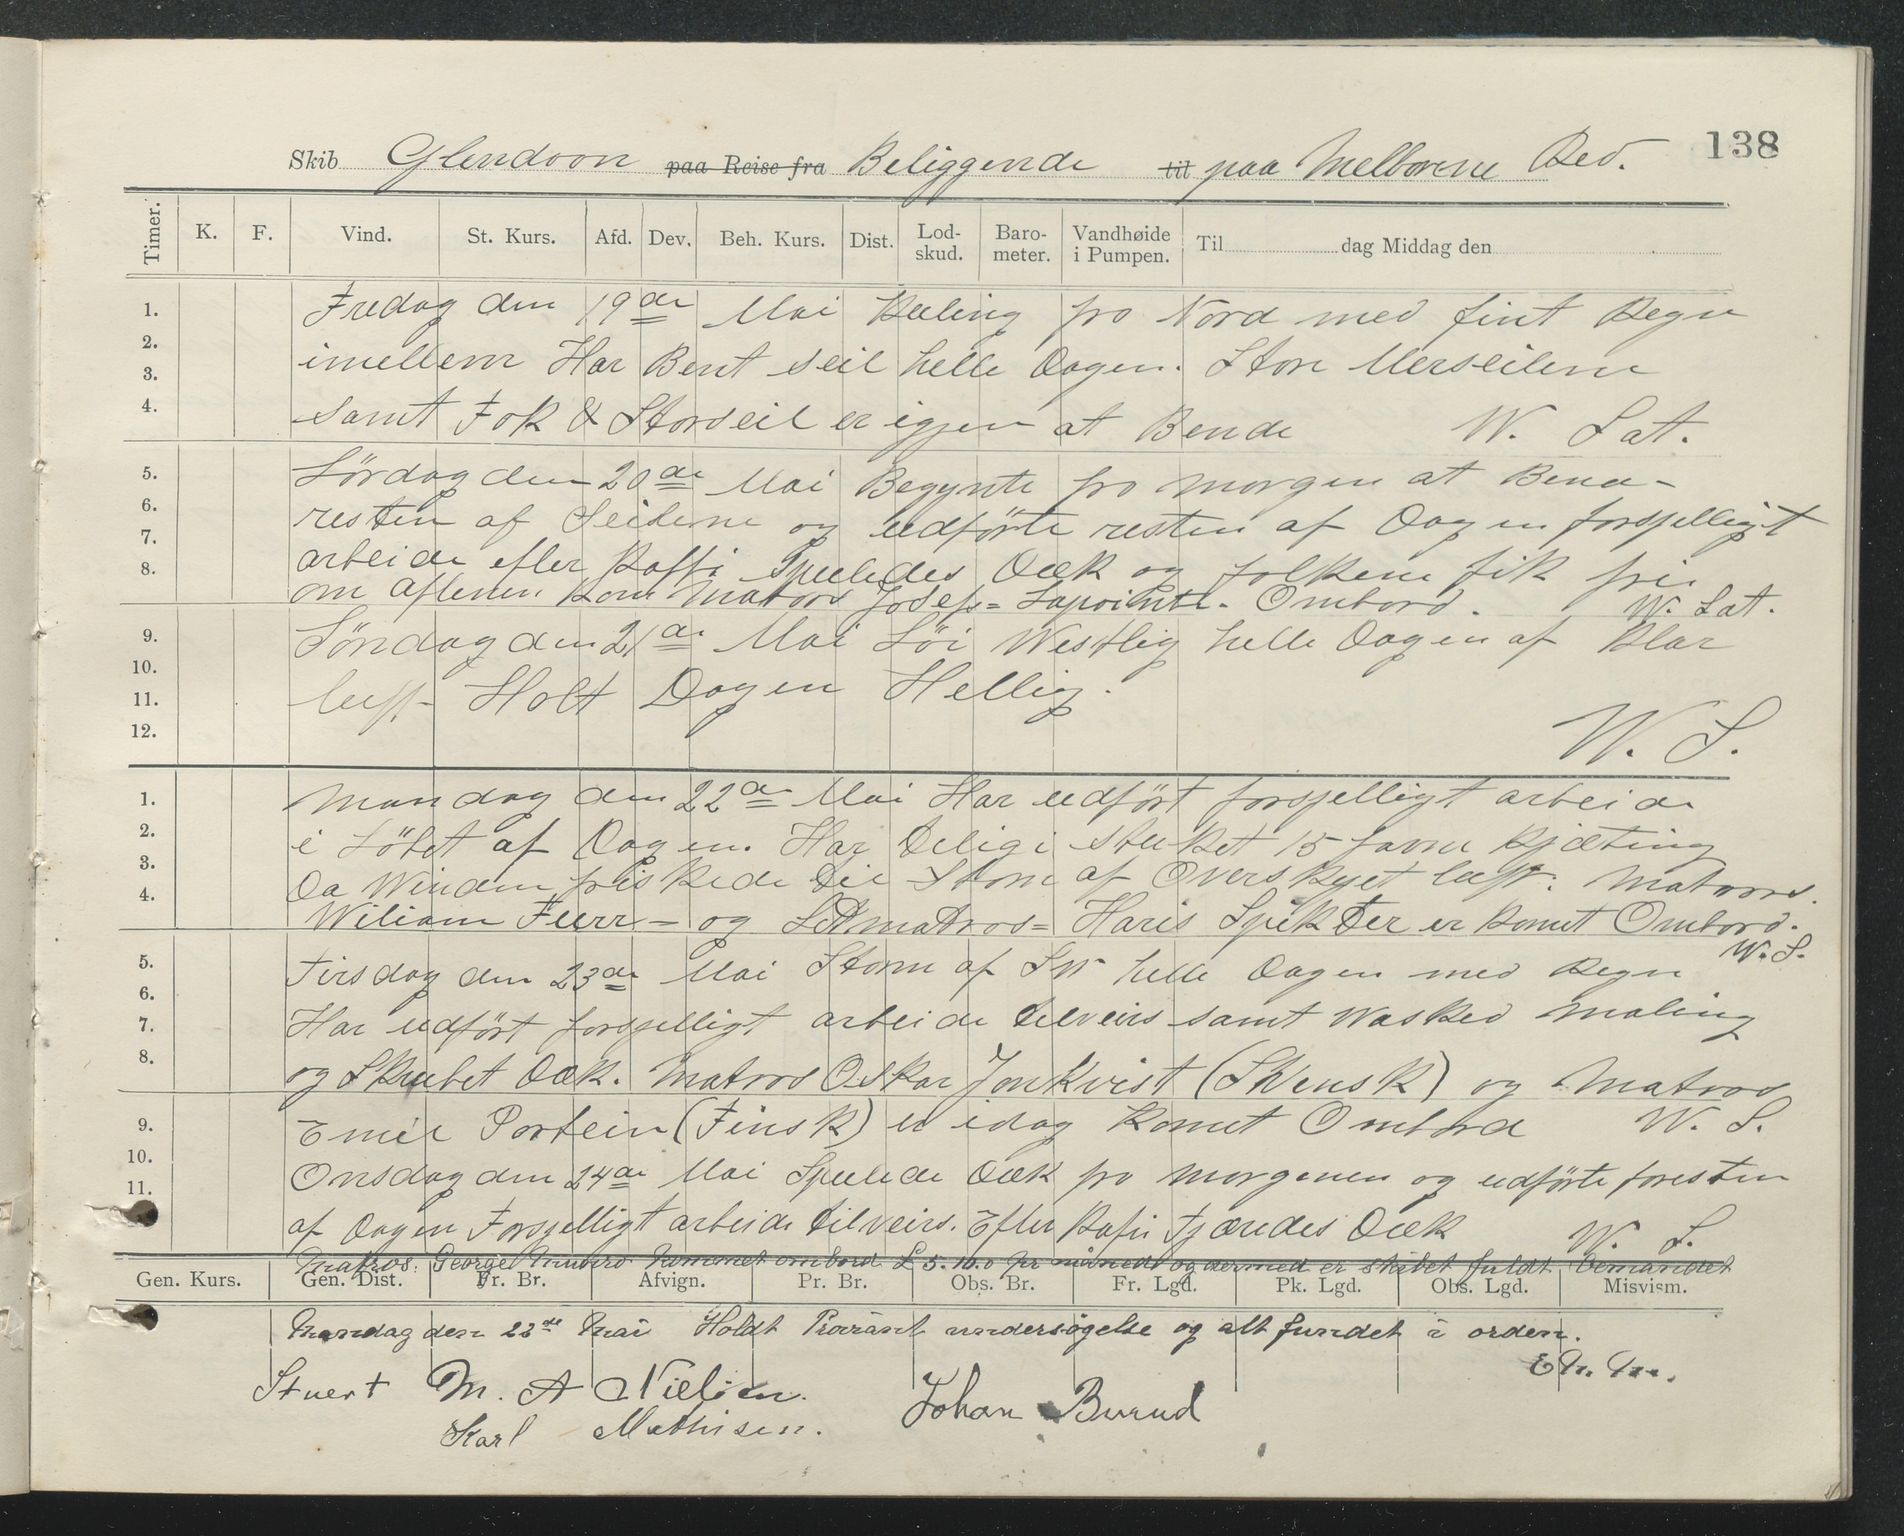 138
Skib Glendoon paa Reise fra Beliggende til paa Melborne Red.
Timer. K. F. Vind. St. Kurs. Afd. Dev. Beh. Kurs. Dist. Lod-skud. Baro-meter. Vandhøide i Pumpen. Til dag Middag den
1. Fredag den 19de Mai Kuling fra Nord med fint Regn
2. 3. imellem Har Bent seil helle Dagen. Store Merseilene
4. samt Fok & Storseil er igjen at Bende W. Sat.
5. Lördag den 20de Mai Begynte fra morgen at Bende
6. resten af Seilene og udförte resten af Dagen forsjelligt
7. 8. arbeide efter Kaffi Spuledes Dæk og folkene fik fri
om aftenen kom Matros Josef = Lapointe. Ombord. W. Sat.
9. Söndag den 21de Mai Löi Westlig helle Dagen af Klar
10. 11. luft - Holt Dagen Hellig.
12. W. S.
1. Mandag den 22de Mai Har udfört forsjelligt arbeide
2. i Löbet af Dagen. Har Deligi stukket 15 favne Kjæting
3. 4. Da Winden friskede til Storm af Overskyet luft. Matros.
Wiliam Furr - og Letmatros = Haris Spikter er komet Ombord.
W. S.
5. Tirsdag den 23de Mai Storm af SW helle Dagen med Regn
6. 7. Har udfört forsjelligt arbeide tilveirs samt Wasked maling
8. og Skrubet Dæk. Matros Oskar Jonkvist (Svensk) og Matros
9. Emil Portein (Finsk) er idag komet Ombord W. S.
10. 11. Onsdag den 24de Mai Spulede Dæk fra morgenen og udförte foresten
af Dagen Forsjelligt arbeide tilveirs. Efter Kafii Fjærnedes Dæk W. S.
Matros. George Munro kommet ombord £ 5.10.0 pr måned og dermed er skibet fuldt bemandet
Gen. Kurs. Gen. Dist. Fr. Br. Afvign. Pr. Br. Obs. Br. Fr. Lgd. Pk. Lgd. Obs. Lgd. Misvism.
Mandag den 22de Mai Holdt Proviant undersøgelse og alt fundet i orden.
Stuert M. A Nielsen. Johan Burud
Karl Mathisen.